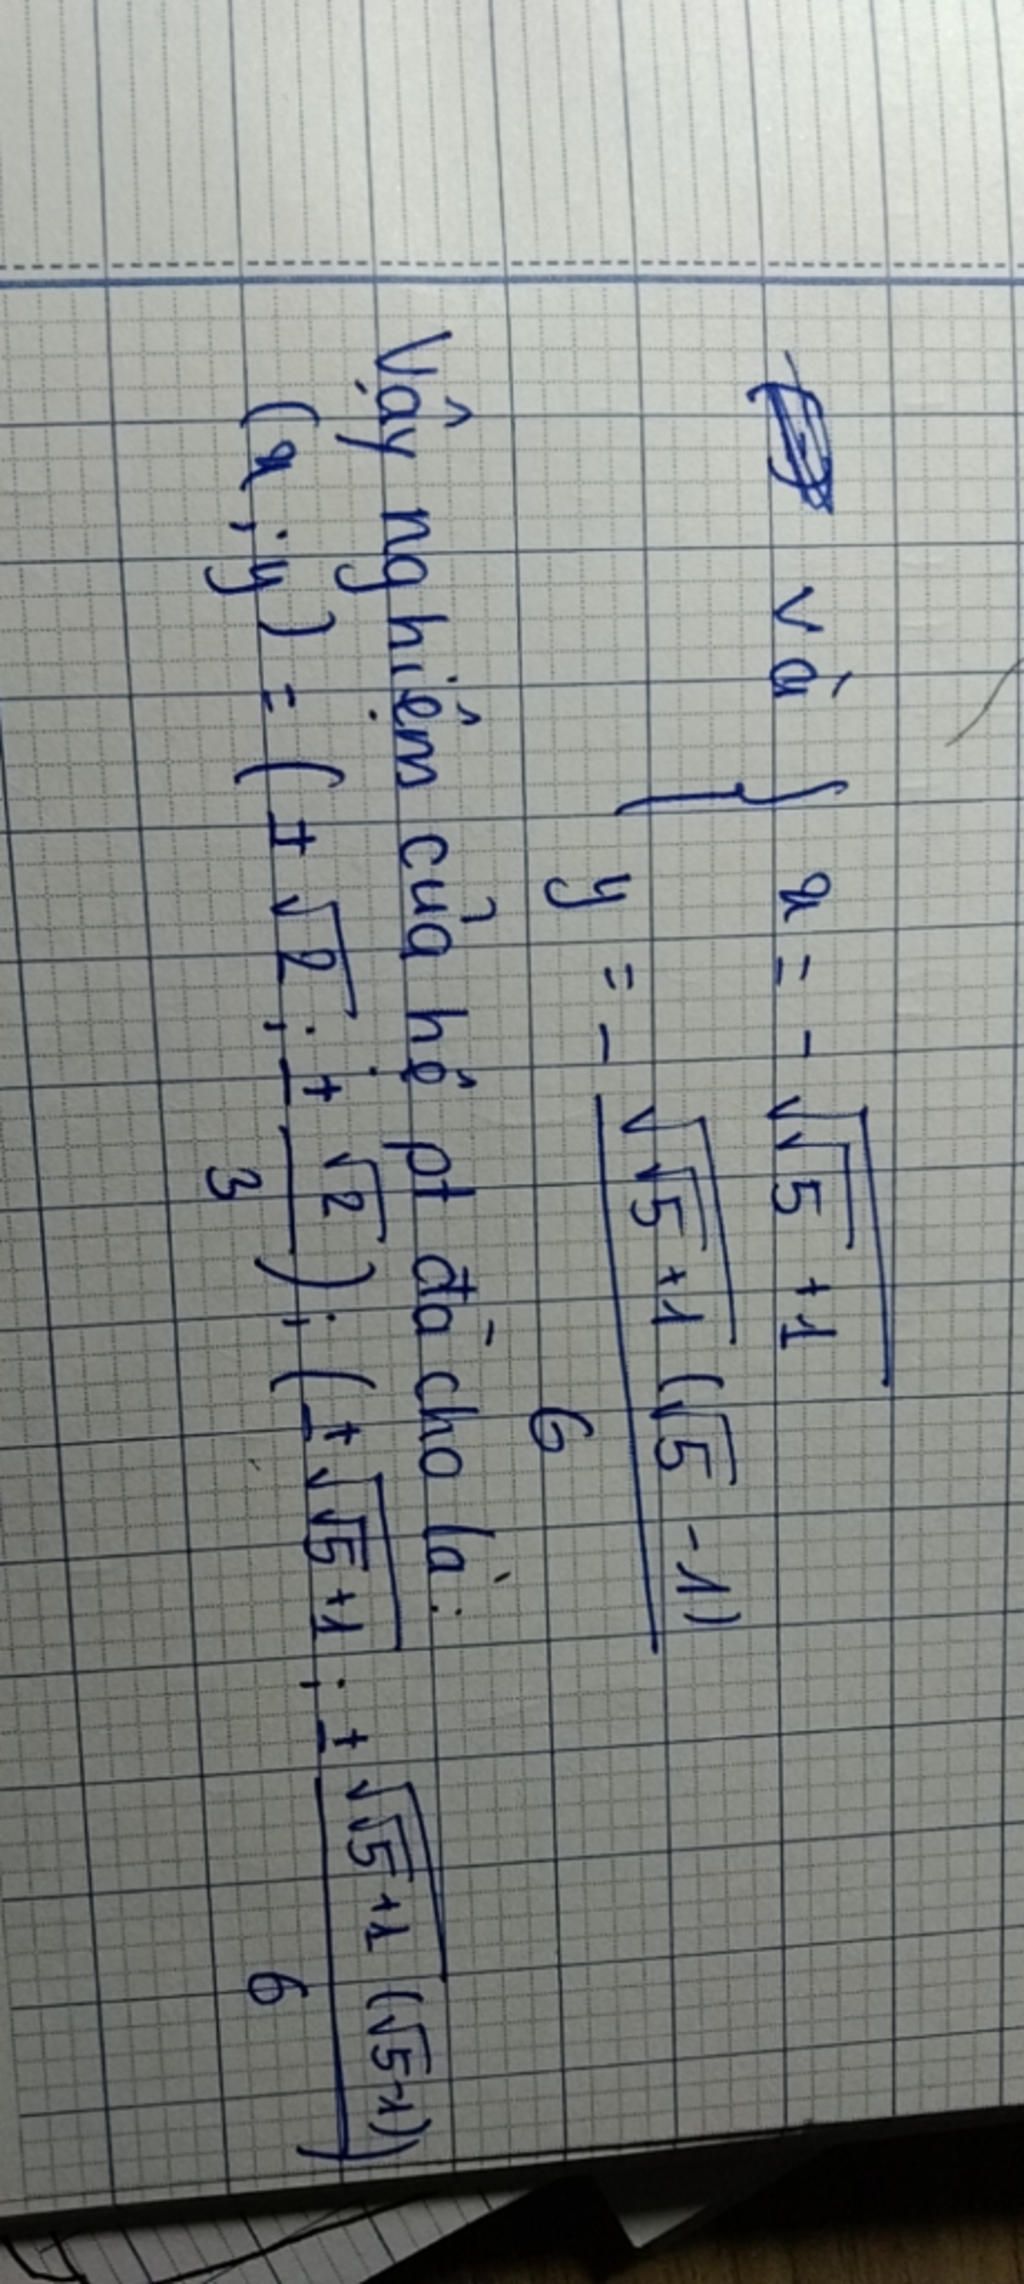 và { x = - √(√5 + 1)
y = - √(√5 + 1) (√5 - 1) / 6
Vậy nghiệm của hệ pt đã cho là:
(x ; y) = (± √2 ; ± √2 / 3) ; (± √(√5 + 1) ; ± √(√5 + 1) (√5 - 1) / 6)